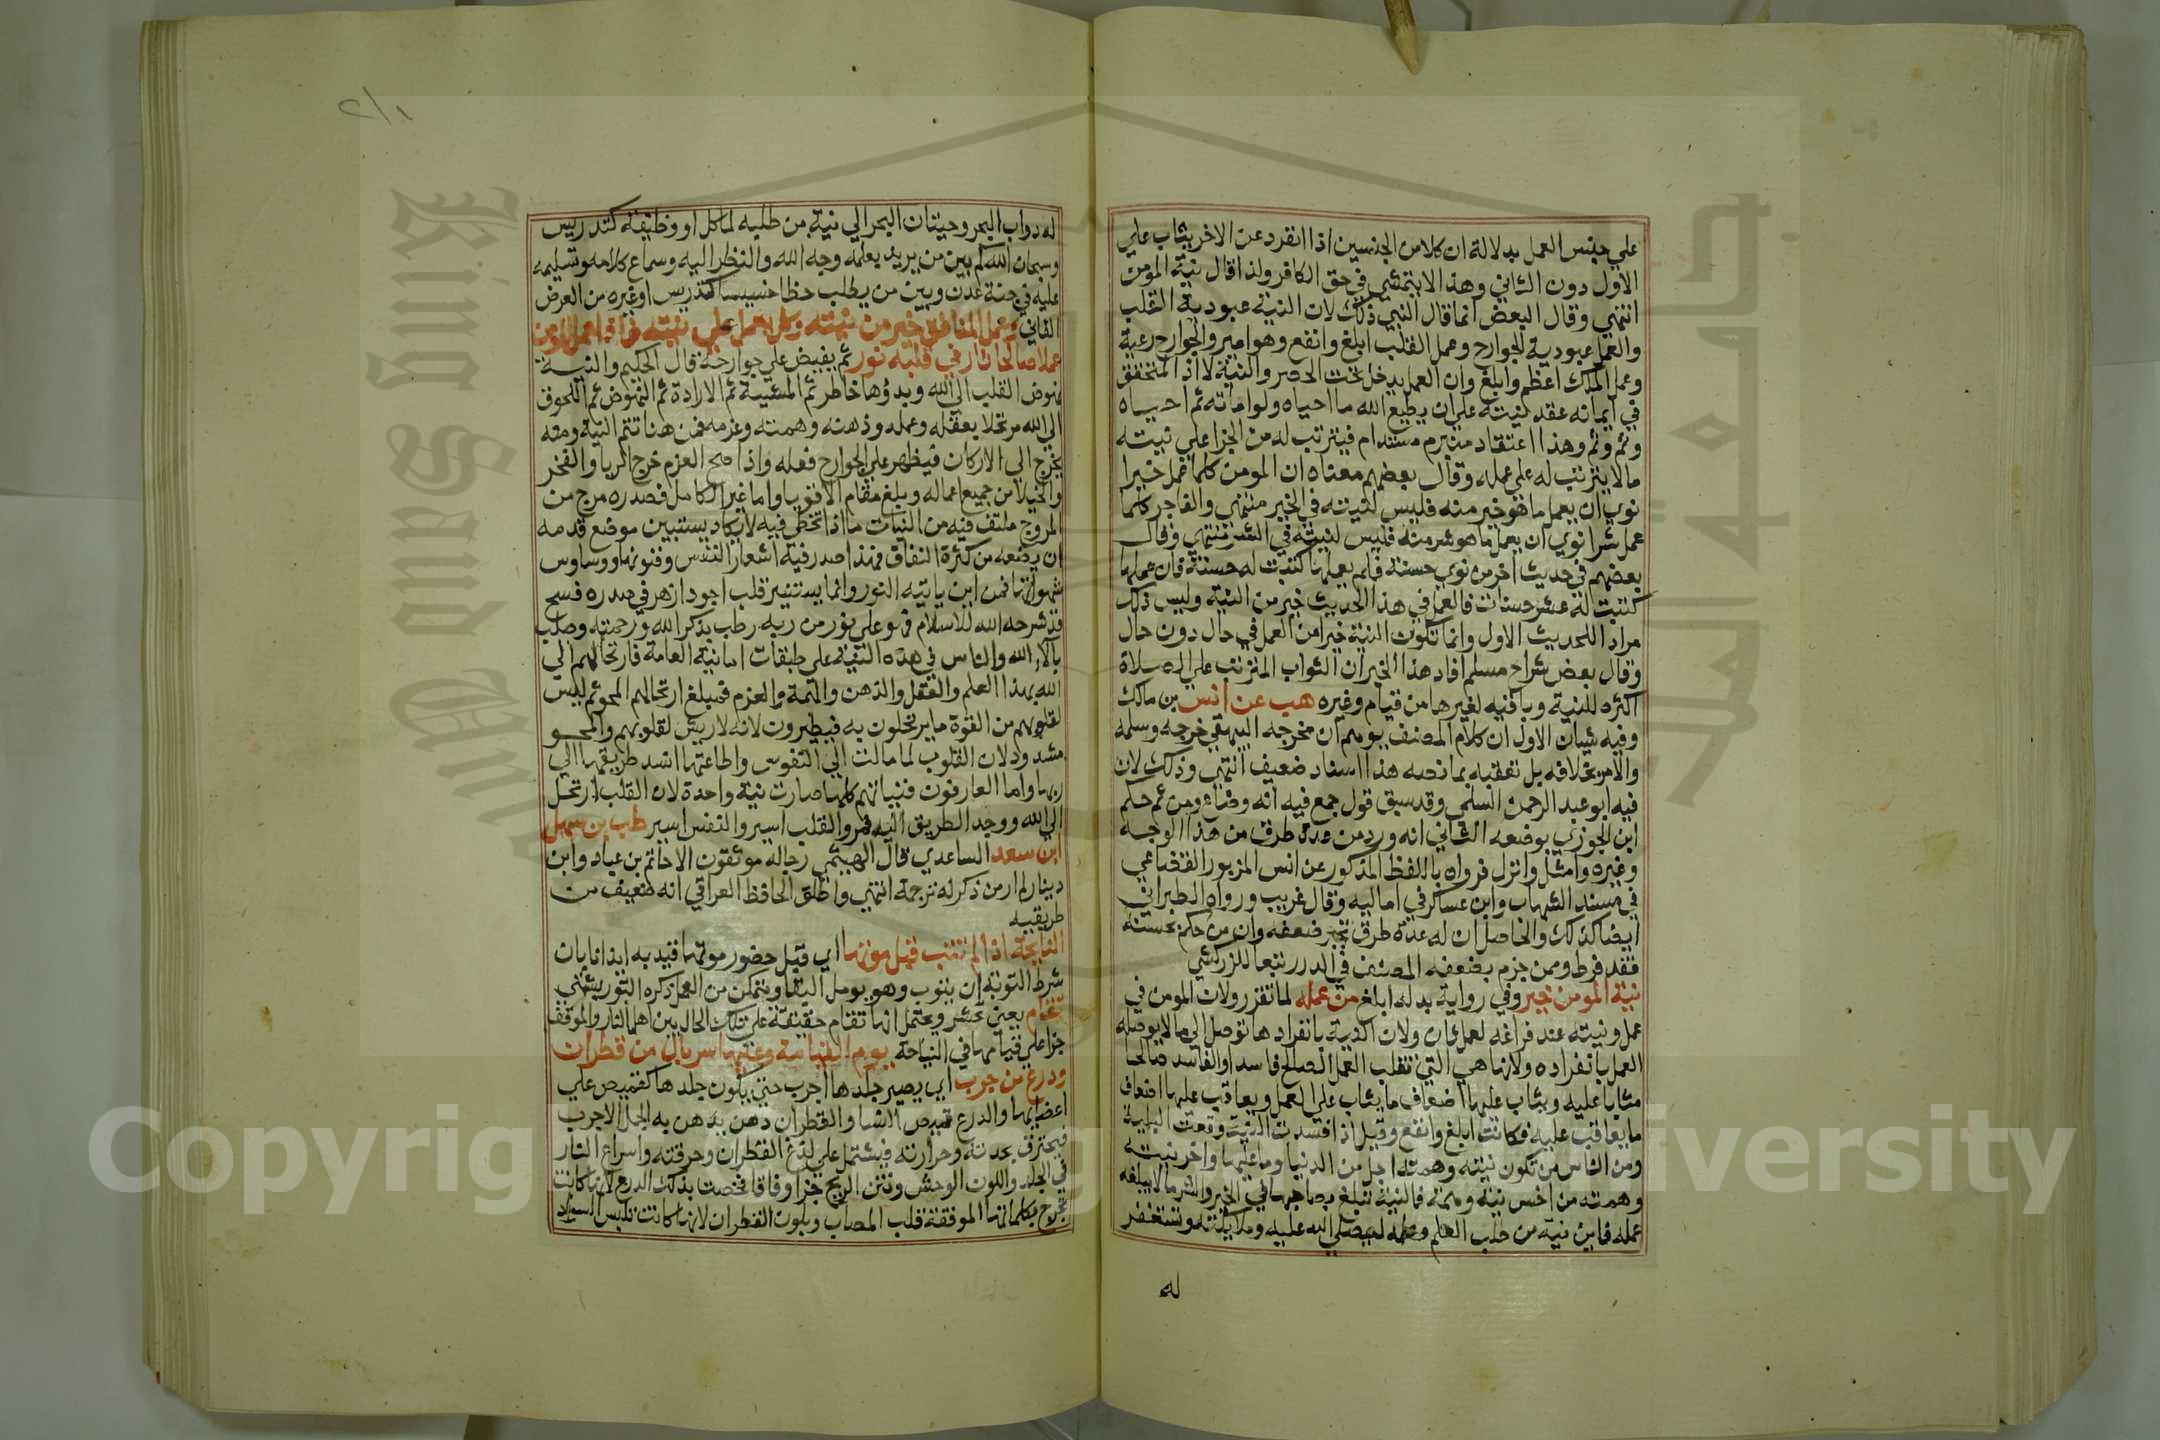 علي جنس العمل بدلالة ان كلا من الجنسين اذا انفرد عن الاخر يثاب علي
الاول دون الثاني وهذا لا يتمشي في حق الكافر ولذا قال نية المؤمن
انتهي وقال البعض انما قال النبي ذلك لان النية عبودية القلب
والعمل عبودية الجوارح وعمل القلب ابلغ وانفع وهو امير والجوارح رعية
وعمل الملك اعظم وابلغ وان العمل يدخل تحت الحصر والنية لا اذ المتحقق
في ايمانه عقد نيته علي ان يطيع الله ما احياه ولو اماته ثم احياه
وثم وثم وهذا اعتقاد منبرم مستدام فيترتب له من الجزا علي نيته
مالا يترتب له علي عمله وقال بعضهم معناه ان المومن كلما عمل خيرا
نوي ان يعمل ما هو خير منه فليس لنيته في الخير منتهي والفاجر كلما
عمل شرا نوي ان يعمل ما هو شر منه فليس لنيته في الشر منتهي وقال
بعضهم في حديث اخر من نوي حسنة فلم يعملها كتبت له حسنة فان عملها
كتبت له عشر حسنات فالعمل في هذا الحديث خير من النية وليس ذلك
مراد اللحديث الاول وانما تكون النية خيرا من العمل في حال دون حال
وقال بعض شراح مسلم افاد هذا الخبر ان الثواب المترتب علي الصلاة
اكثره للنية وباقيه لغيرها من قيام وغيره هب عن انس بن مالك
وفيه شيان الاول ان كلام المصنف يوهم ان مخرجه البيهقي خرجه وسلمه
والامر بخلافه بل تعقبه بما نصه هذا اسناد ضعيف انتهي وذلك لان
فيه ابو عبد الرحمن السلمي وقد سبق قول جمع فيه انه وضاع ومن ثم حكم
ابن الجوزي بوضعه الثاني انه ورد من عدة طرق من هذا الوجه
وغيره وامثل وانزل فرواه باللفظ المذكور عن انس المزبور القضاعي
في مسند الشهاب وابن عساكر في اماليه وقال غريب ورواه الطبراني
ايضا كذلك والحاصل ان له عدة طرق تجبر ضعفه وان من حكم بحسنه
فقد فرط وممن جزم بضعفه المصنف في الدرر تبعا للزركشي
نية المومن خير وفي رواية بدله ابلغ من عمله لما تقرر ولان المومن في
عمل ونيته عند فراغه لعمل ثان ولان النية بانفرادها توصل الي ما لا يوصله
العمل بانفراده ولانها هي التي تقلب العمل الصالح فاسدا والفاسد صالحا
مثابا عليه ويثاب عليها اضعاف ما يثاب علي العمل ويعاقب عليها اضعاف
ما يعاقب عليه فكانت ابلغ وانفع وقيل اذا فسدت النية وقعت البلية
ومن الناس من تكون نيته وهمته اجل من الدنيا وما عليها واخر نيته
وهمته من اخس نية وهمة فالنية تبلغ بصاحبها في الخير والشر مالا يبلغه
عمله فاين نية من طلب العلم وعلمه ليصلي الله عليه وملائكته وتستغفر
له
له دواب البحر وحيتان البحر الي نية من طلبه لماكل او وظيفة كتدريس
وسبحان الله كم بين من يريد بعلمه وجه الله والنظر اليه وسماع كلامه وتسليمه
عليه في جنة عدن وبين من يطلب حظا خسيسا كتدريس او غيره من العرض
الفاني وعمل المنافق خير من نيته وكل يعمل علي نيته فاذا عمل المومن
عملا صالحا ثار في قلبه نور ثم يفيض علي جوارحه قال الحكيم والنية
نهوض القلب الي الله وبدؤها خاطر ثم المشيئة ثم الارادة ثم النهوض ثم اللحوق
الي الله مرتحلا بعقله وعمله وذهنه وهمته وعزمه فمن هنا تتم النية ومنه
يخرج الي الاركان فيظهر علي الجوارح فعله واذا صح العزم خرج الريا والفخر
والخيلا من جميع اعماله وبلغ مقام الاقويا واما غير الكامل فصدره مرج من
المروج ملتف فيه من النبات ما اذا تخطي فيه لا يكاد يستبين موضع قدمه
ان يضعه من كثرة التفاف فهذا صدر فيه اشعار النفس وفنونها ووساوس
شهواتها فمن اين ياتيه النور وانما يستنير قلب اجود ازهر في صدره فسح
قد شرحه الله للاسلام فهو علي نور من ربه رطب بذكر الله ورحمته وصلب
بالاء الله والناس في هذه النية علي طبقات اما نية العامة فارتحالهم الي
الله بهذا العلم والعقل والذهن والهمة والعزم فمبلغ ارتحالهم الجو ثم ليس
لقلوبهم من القوة ما يرتحلون به فيطيرون لانه لا ريش لقلوبهم والجو
مسدود لان القلوب لما مالت الي النفوس واطاعتها انسد طريقها الي
ربها واما العارفون فنياتهم كلها صارت نية واحدة لان القلب ارتحل
الي الله ووجد الطريق اليه فمر والقلب امير والنفس اسير طب بن سهل
ابن سعد الساعدي قال الهيثمي رجاله موثقون الا حاتم بن عباد وابن
دينار لم ار من ذكر له ترجمة انتهي واطلق الحافظ العراقي انه ضعيف من
طريقيه
النايحة اذا لم تتب قبل موتها اي قبل حضور موتها قيد به ايذانا بان
شرط التوبة ان يتوب وهو يومل البقا ويتمكن من العمل ذكره التوربشتي
تقام يعني تحشر ويحتمل انها تقام حقيقة علي تلك الحال بين اهل النار والموقف
جزا علي قيامها في النياحة يوم القيامة وعليها سربال من قطران
ودرع من جرب اي يصير جلدها اجرب حتي يكون جلدها كقميص علي
اعضايها والدرع قميص النسا والقطران دهن يدهن به الجمل الاجرب
فيحترق بحدته وحرارته فيشتمل علي لذع القطران وحرقته واسراع النار
في الجلد واللون الوحش ونتن الريح جزا وفاقا فخصت بذلك الدرع لانها كانت
تجرح بكلماتها الموفقة قلب المصاب وبلون القطران لانها كانت تلبس السواد